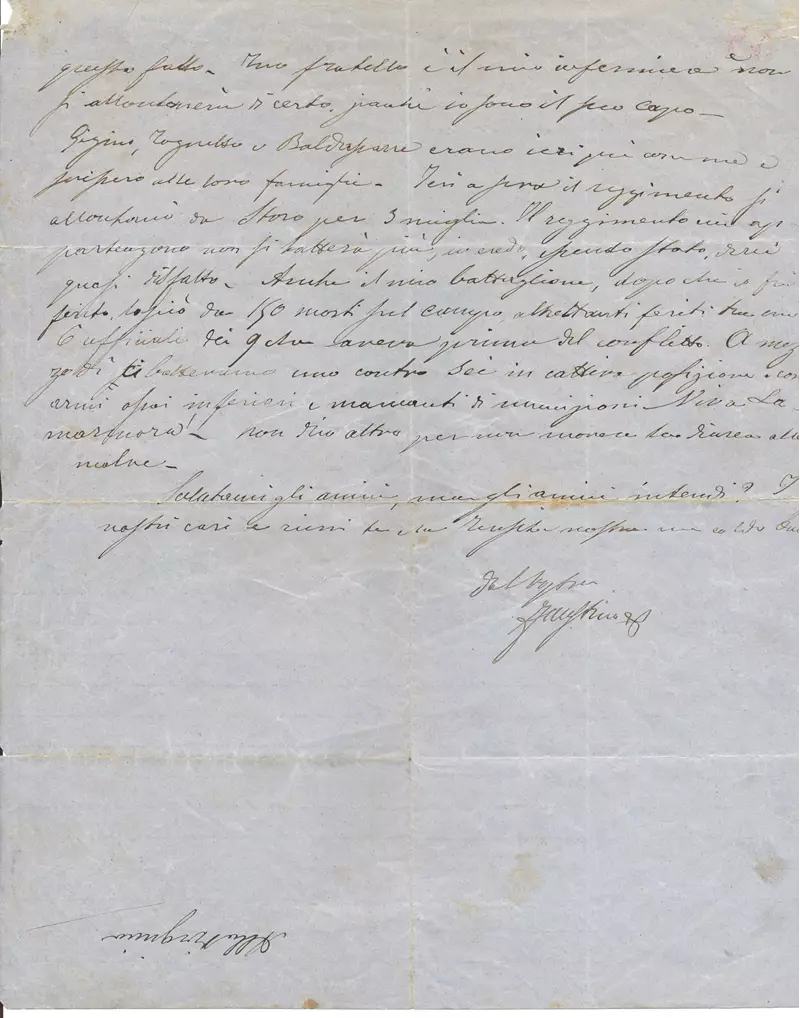 questo fatto - Tuo fratello è il mio infermiere e non
si allontanerà di certo, perché io sono il suo capo -
Gigino, Tognetto e Baldassarre erano ieri qui con me e
scrissero alle loro famiglie - Ieri a sera il reggimento si
allontanò da Storo per 3 miglia. Il reggimento cui ap-
partenevano non si batterà più, io credo, essendo stato, direi
quasi disfatto - Anche il mio battaglione, dopo che io fui
ferito, lasciò da 150 morti sul campo, altrettanti feriti
6 ufficiali dei 9 che aveva prima del conflitto. A mez
zodì ci battevamo uno contro sei in cattiva posizione con
armi assai inferiori e mancanti di munizioni Viva La-
marmora! - non dico altro per non
Salutami gli amici, ma gli amici intendi? I
nostri cari e ricevi nostra un caldo
dal vostro
Faustino
Alla Virginia